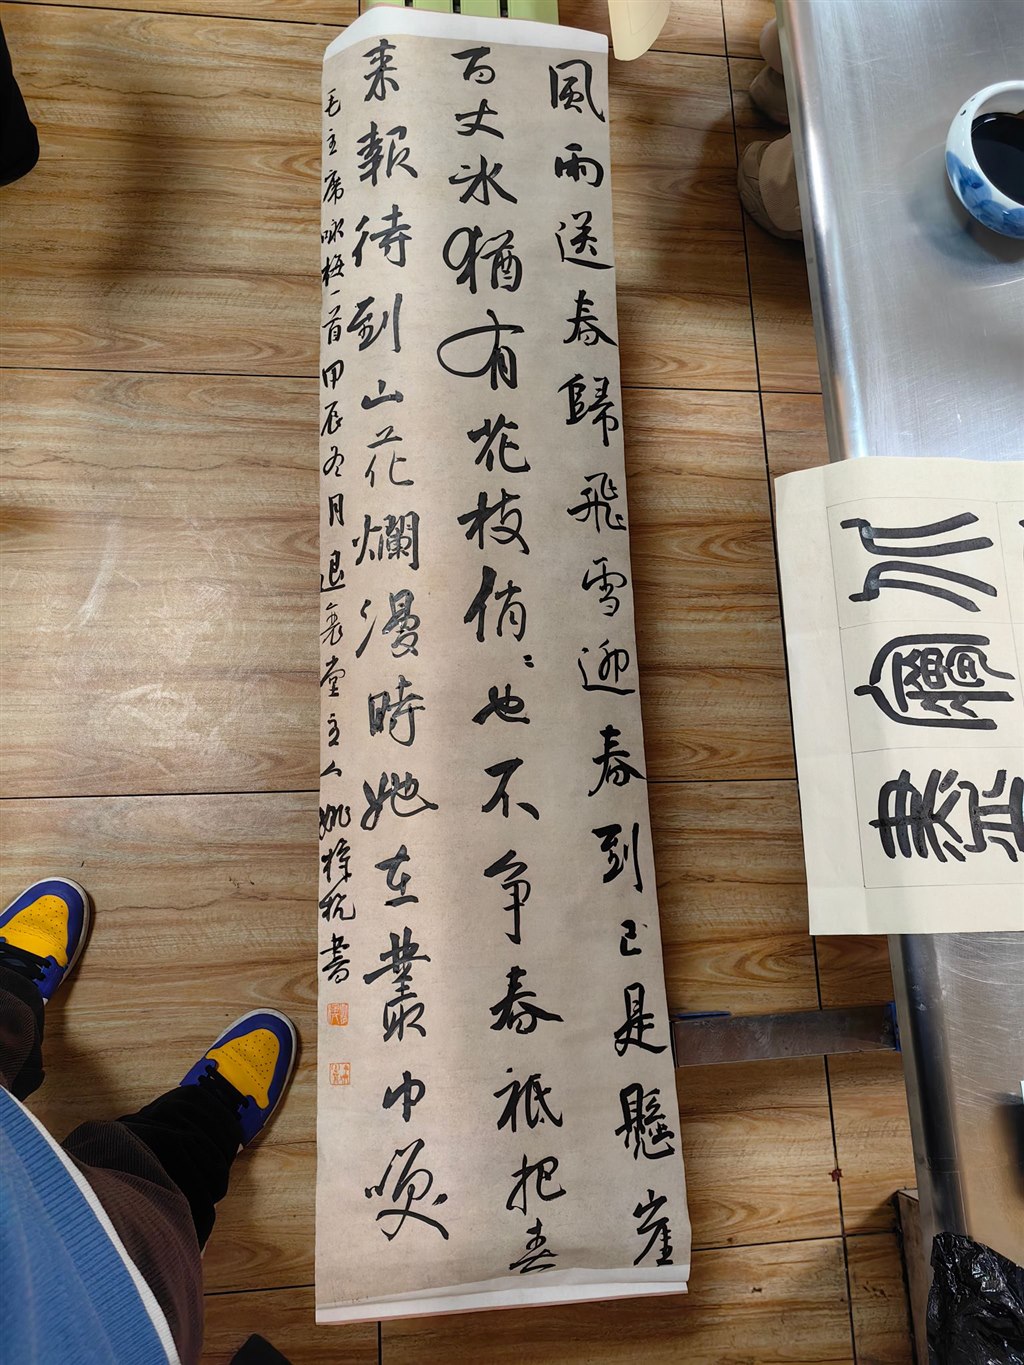 風雨送春歸飛雪迎春到已是懸崖
百丈冰猶有花枝俏〻也不争春祗把春
来報待到山花爛漫時她在叢中笑
毛主席咏梅一首甲辰冬月退密堂主人姚 書